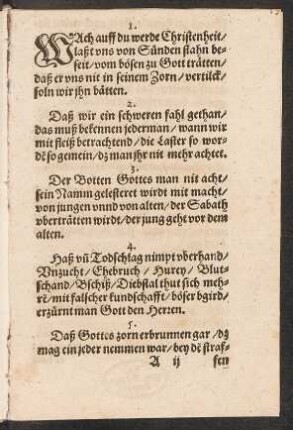 1.
WAch auff du werde Christenheit/
laßt vns von Sünden stahn be-
seit/vom bösen zu Gott trätten/
daß er vns nit in seinem Zorn/vertilck/
soln wir jhn bätten.
2.
Daß wir ein schweren fahl gethan/
das muß bekennen jederman/wann wir
mit fleiß betrachtend/die Laster so wor-
dẽ so gemein/dz man jhr nit mehr achtet.
3.
Der Botten Gottes man nit acht/
sein Namm gelesteret wirdt mit macht/
von jungen vnnd von alten/der Sabath
vberträtten wirdt/der jung geht vor dem
alten.
4.
Haß vñ Todschlag nimpt vberhand/
Vnzucht/Ehebruch/Hurey/Blut-
schand/Bschiß/Diebstal thut sich meh-
rẽ/mit falscher kundschafft/böser bgird/
erzürnt man Gott den Herren.
5.
Daß Gottes zorn erbrunnen gar/dz
mag ein jeder nemmen war/bey dẽ straf-
A ij fen